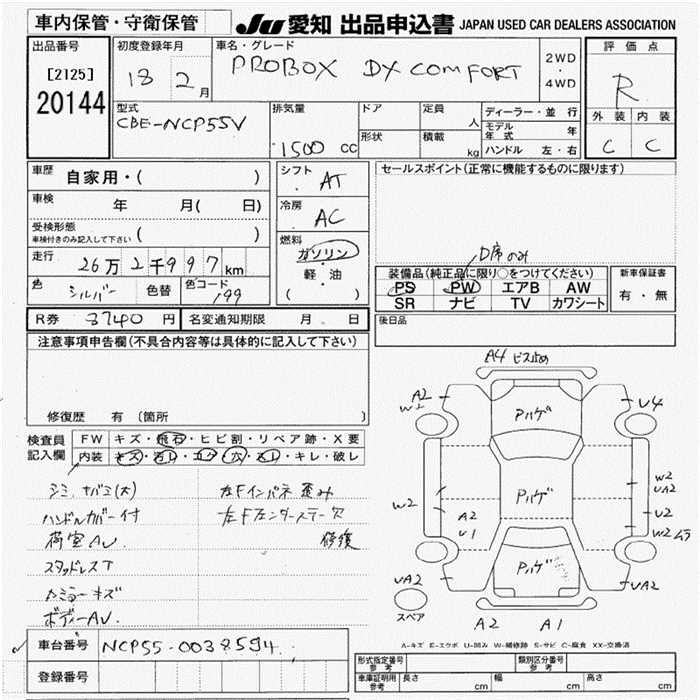 車内保管・守衛保管
JU 愛知 出品申込書 JAPAN USED CAR DEALERS ASSOCIATION
出品番号
[2125]
20144
初度登録年月
18 2月
車名・グレード
PROBOX DX COMFORT
2WD
・
4WD
評価点
R
外装 内装
C C
型式
CBE-NCP55V
排気量
1500 cc
ドア
形状
定員
人
積載
kg
ディーラー・並行
モデル年式 年
ハンドル 左・右
車歴 自家用・( )
車検 年 月( 日)
受検形態
車検付きのみ記入して下さい ( )
走行 26万2千997km
色 シルバー 色替 色コード 199
シフト AT
冷房 AC
燃料
ガソリン
・
軽・油
( )
セールスポイント(正常に機能するものに限ります)
D席のみ
装備品(純正品に限り○をつけてください)
PS PW エアB AW
SR ナビ TV カワシート
新車保証書
有・無
R券 8740円 名変通知期限 月 日
後日品
注意事項申告欄(不具合内容等は具体的に記入して下さい)
修復歴 有 〔箇所 〕
検査員
記入欄
FW キズ・飛石・ヒビ割・リペア跡・X要
内装 キズ・汚レ・コゲ・穴・スレ・キレ・破レ
シミ、ナバミ(大)
ハンドルカバー付
荷室AU.
スタッドレスT
ルミラーキズ
ボディーAU.
左Fインパネ 歪み
左Fフェンダーステー欠
修復
A4 ビス止め
A2
W2
U4
Pハゲ
W2
W2
UA2
Pハゲ
A2
U1
U2
W2 ムラ
Pハゲ
UA2
UA2
スペア
A2 A1
A-キズ E-エクボ U-凹み W-補修跡 S-サビ C-腐食 XX-交換済
車台番号 NCP55-0038594
登録番号
形式指定番号
参考
類別区分番号
参考
車庫証明用
参考
長さ cm 幅 cm 高さ cm